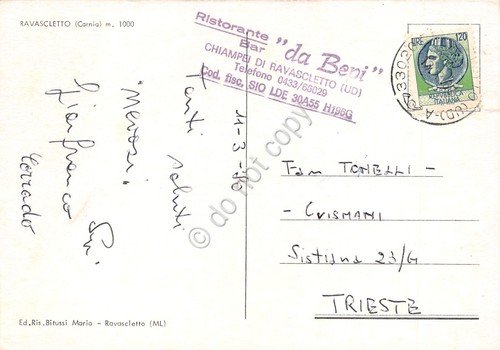 RAVASCLETTO (Carnia) m. 1000
Ristorante
Bar "da Beni"
CHIAMPEI DI RAVASCLETTO (UD)
Telefono 0433/66029
Cod. fisc. SIO LDE 30A55 H196G
LIRE 120
REPUBBLICA
ITALIANA
33020
(UD)-A
11-3-80
Tanti saluti
"Nevosi"
Gianfranco
Corrado
Fam TONELLI -
- CUISMANI
Sistiana 23/G
TRIESTE
Ed. Ris. Bitussi Mario - Ravascletto (ML)
© do not copy